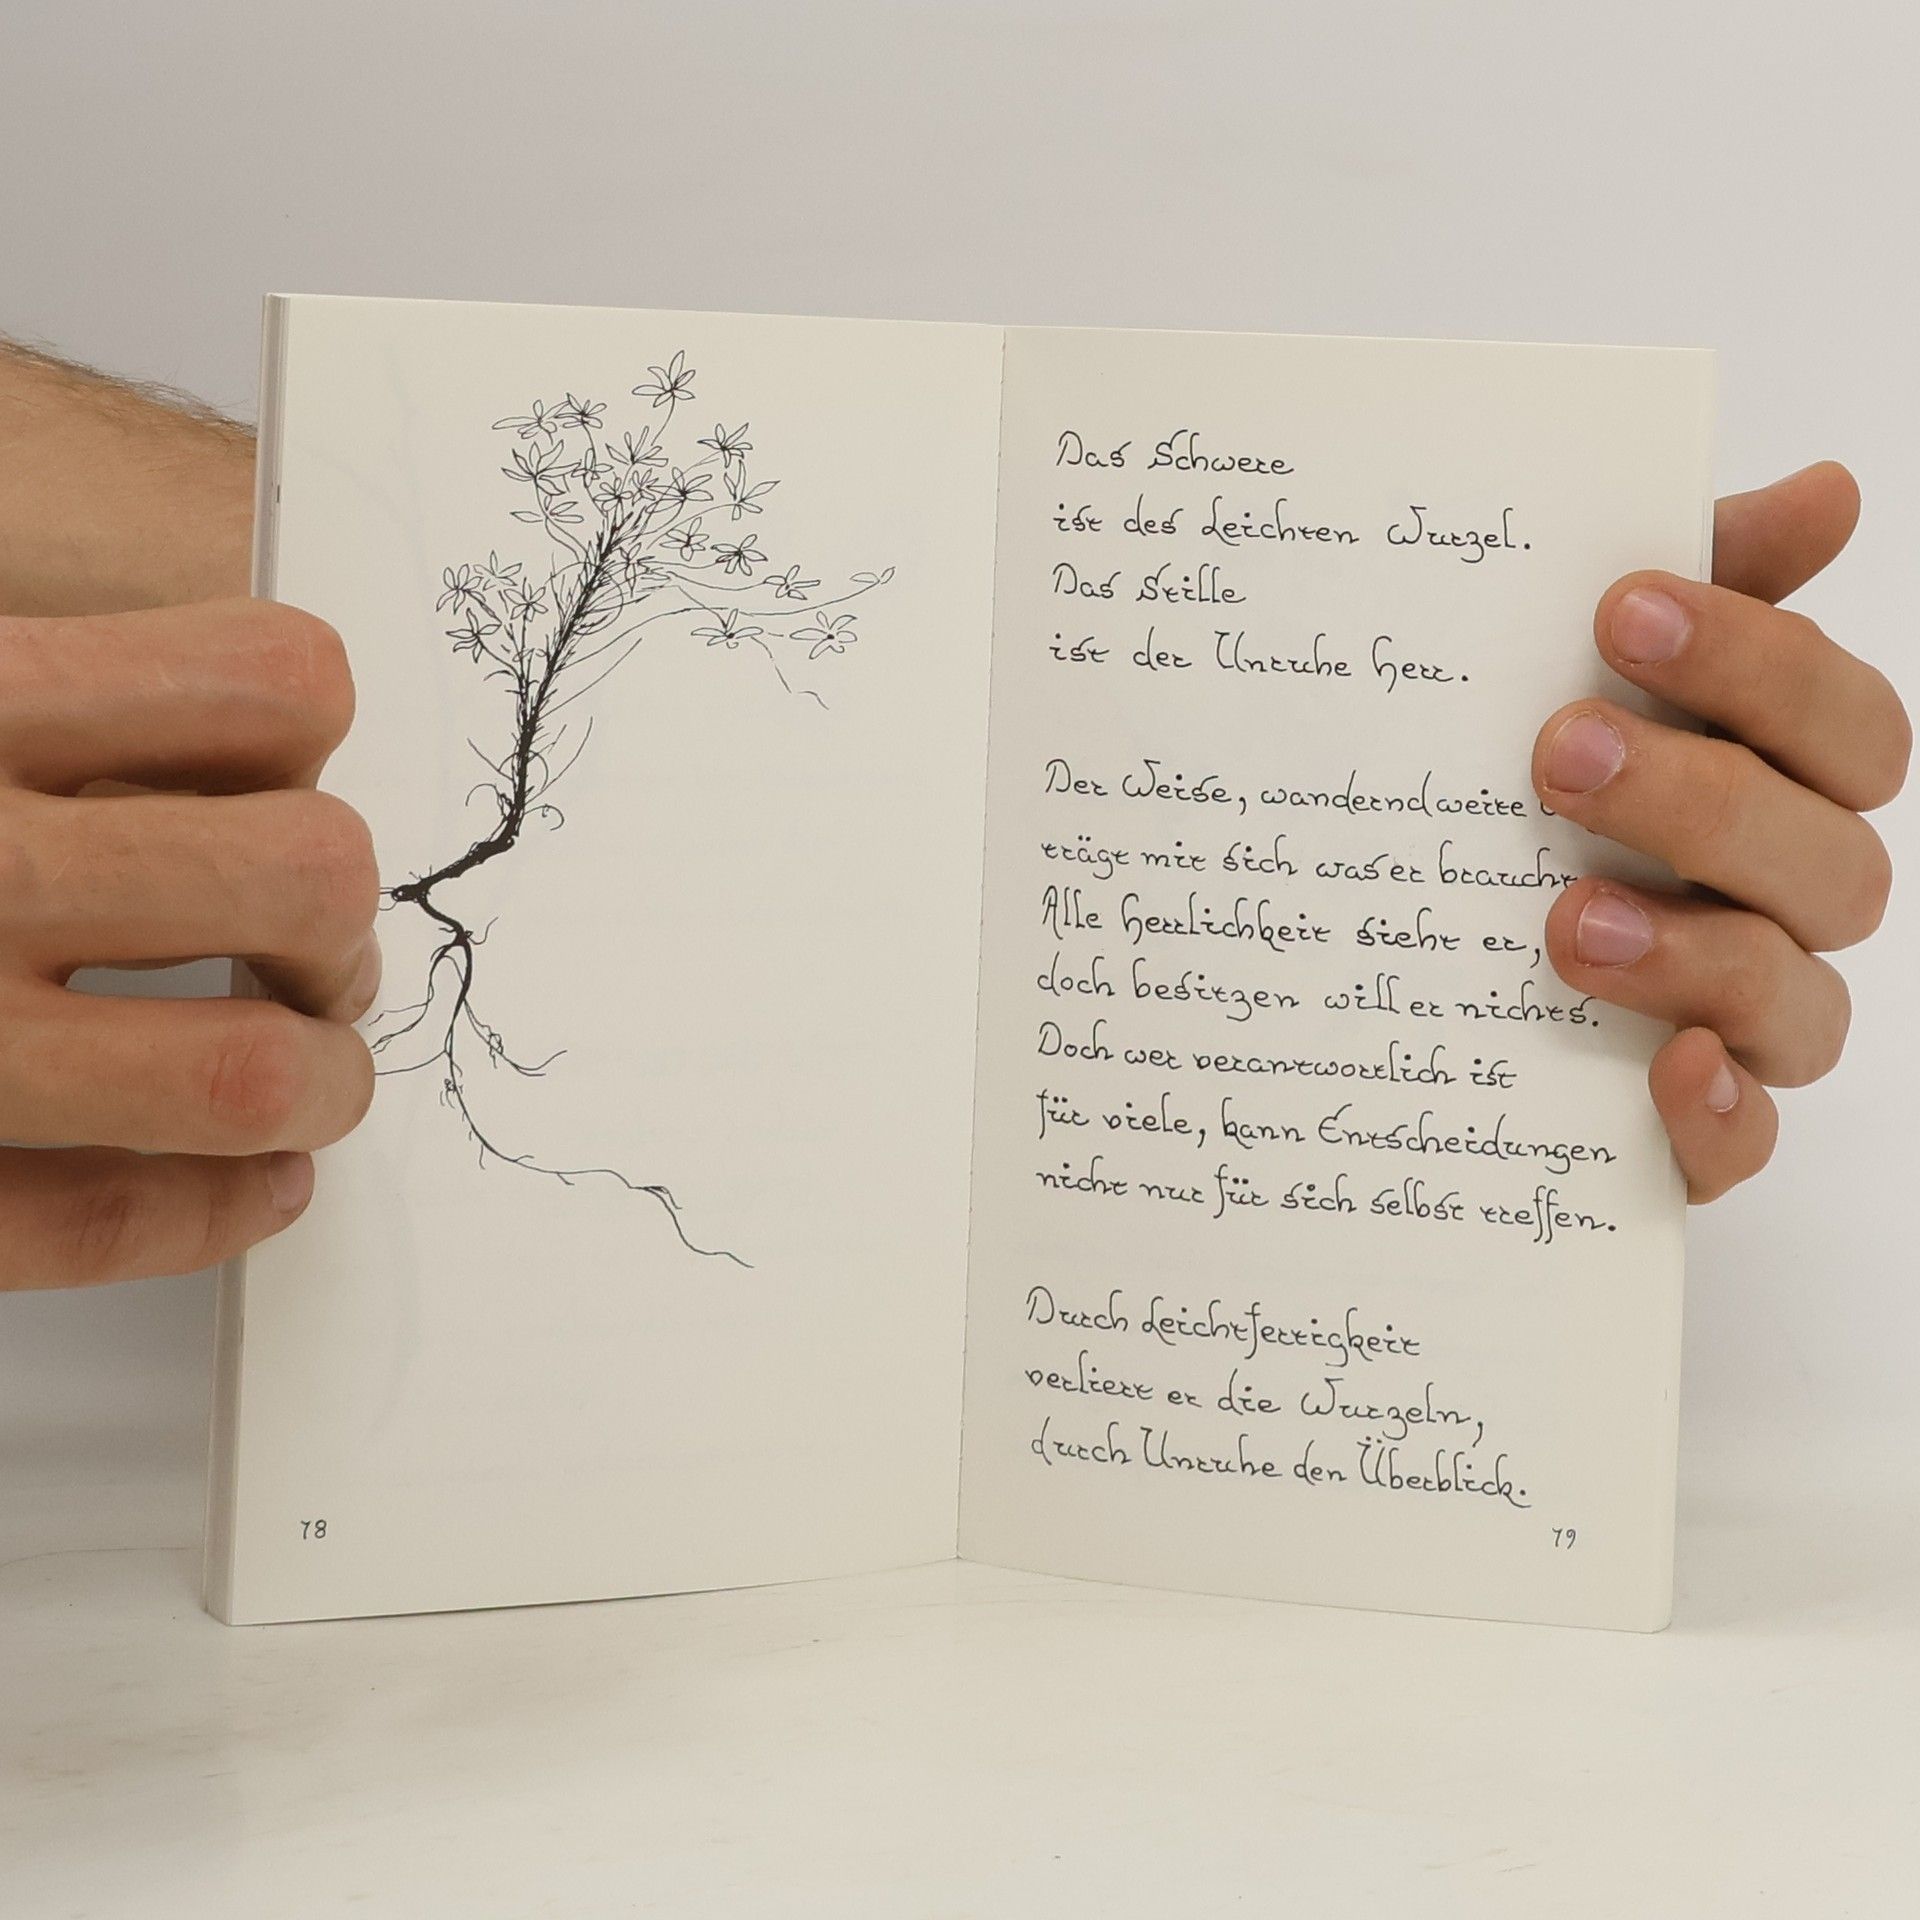 Das Schwere
ist des Leichten Wurzel.
Das Stille
ist der Unruhe Herr.
Der Weise, wandernd weite
trägt mit sich was er braucht
Alle Herrlichkeit sieht er,
doch besitzen will er nichts.
Doch wer verantwortlich ist
für viele, kann Entscheidungen
nicht nur für sich selbst treffen.
Durch Leichtfertigkeit
verliert er die Wurzeln,
durch Unruhe den Überblick.
78
79